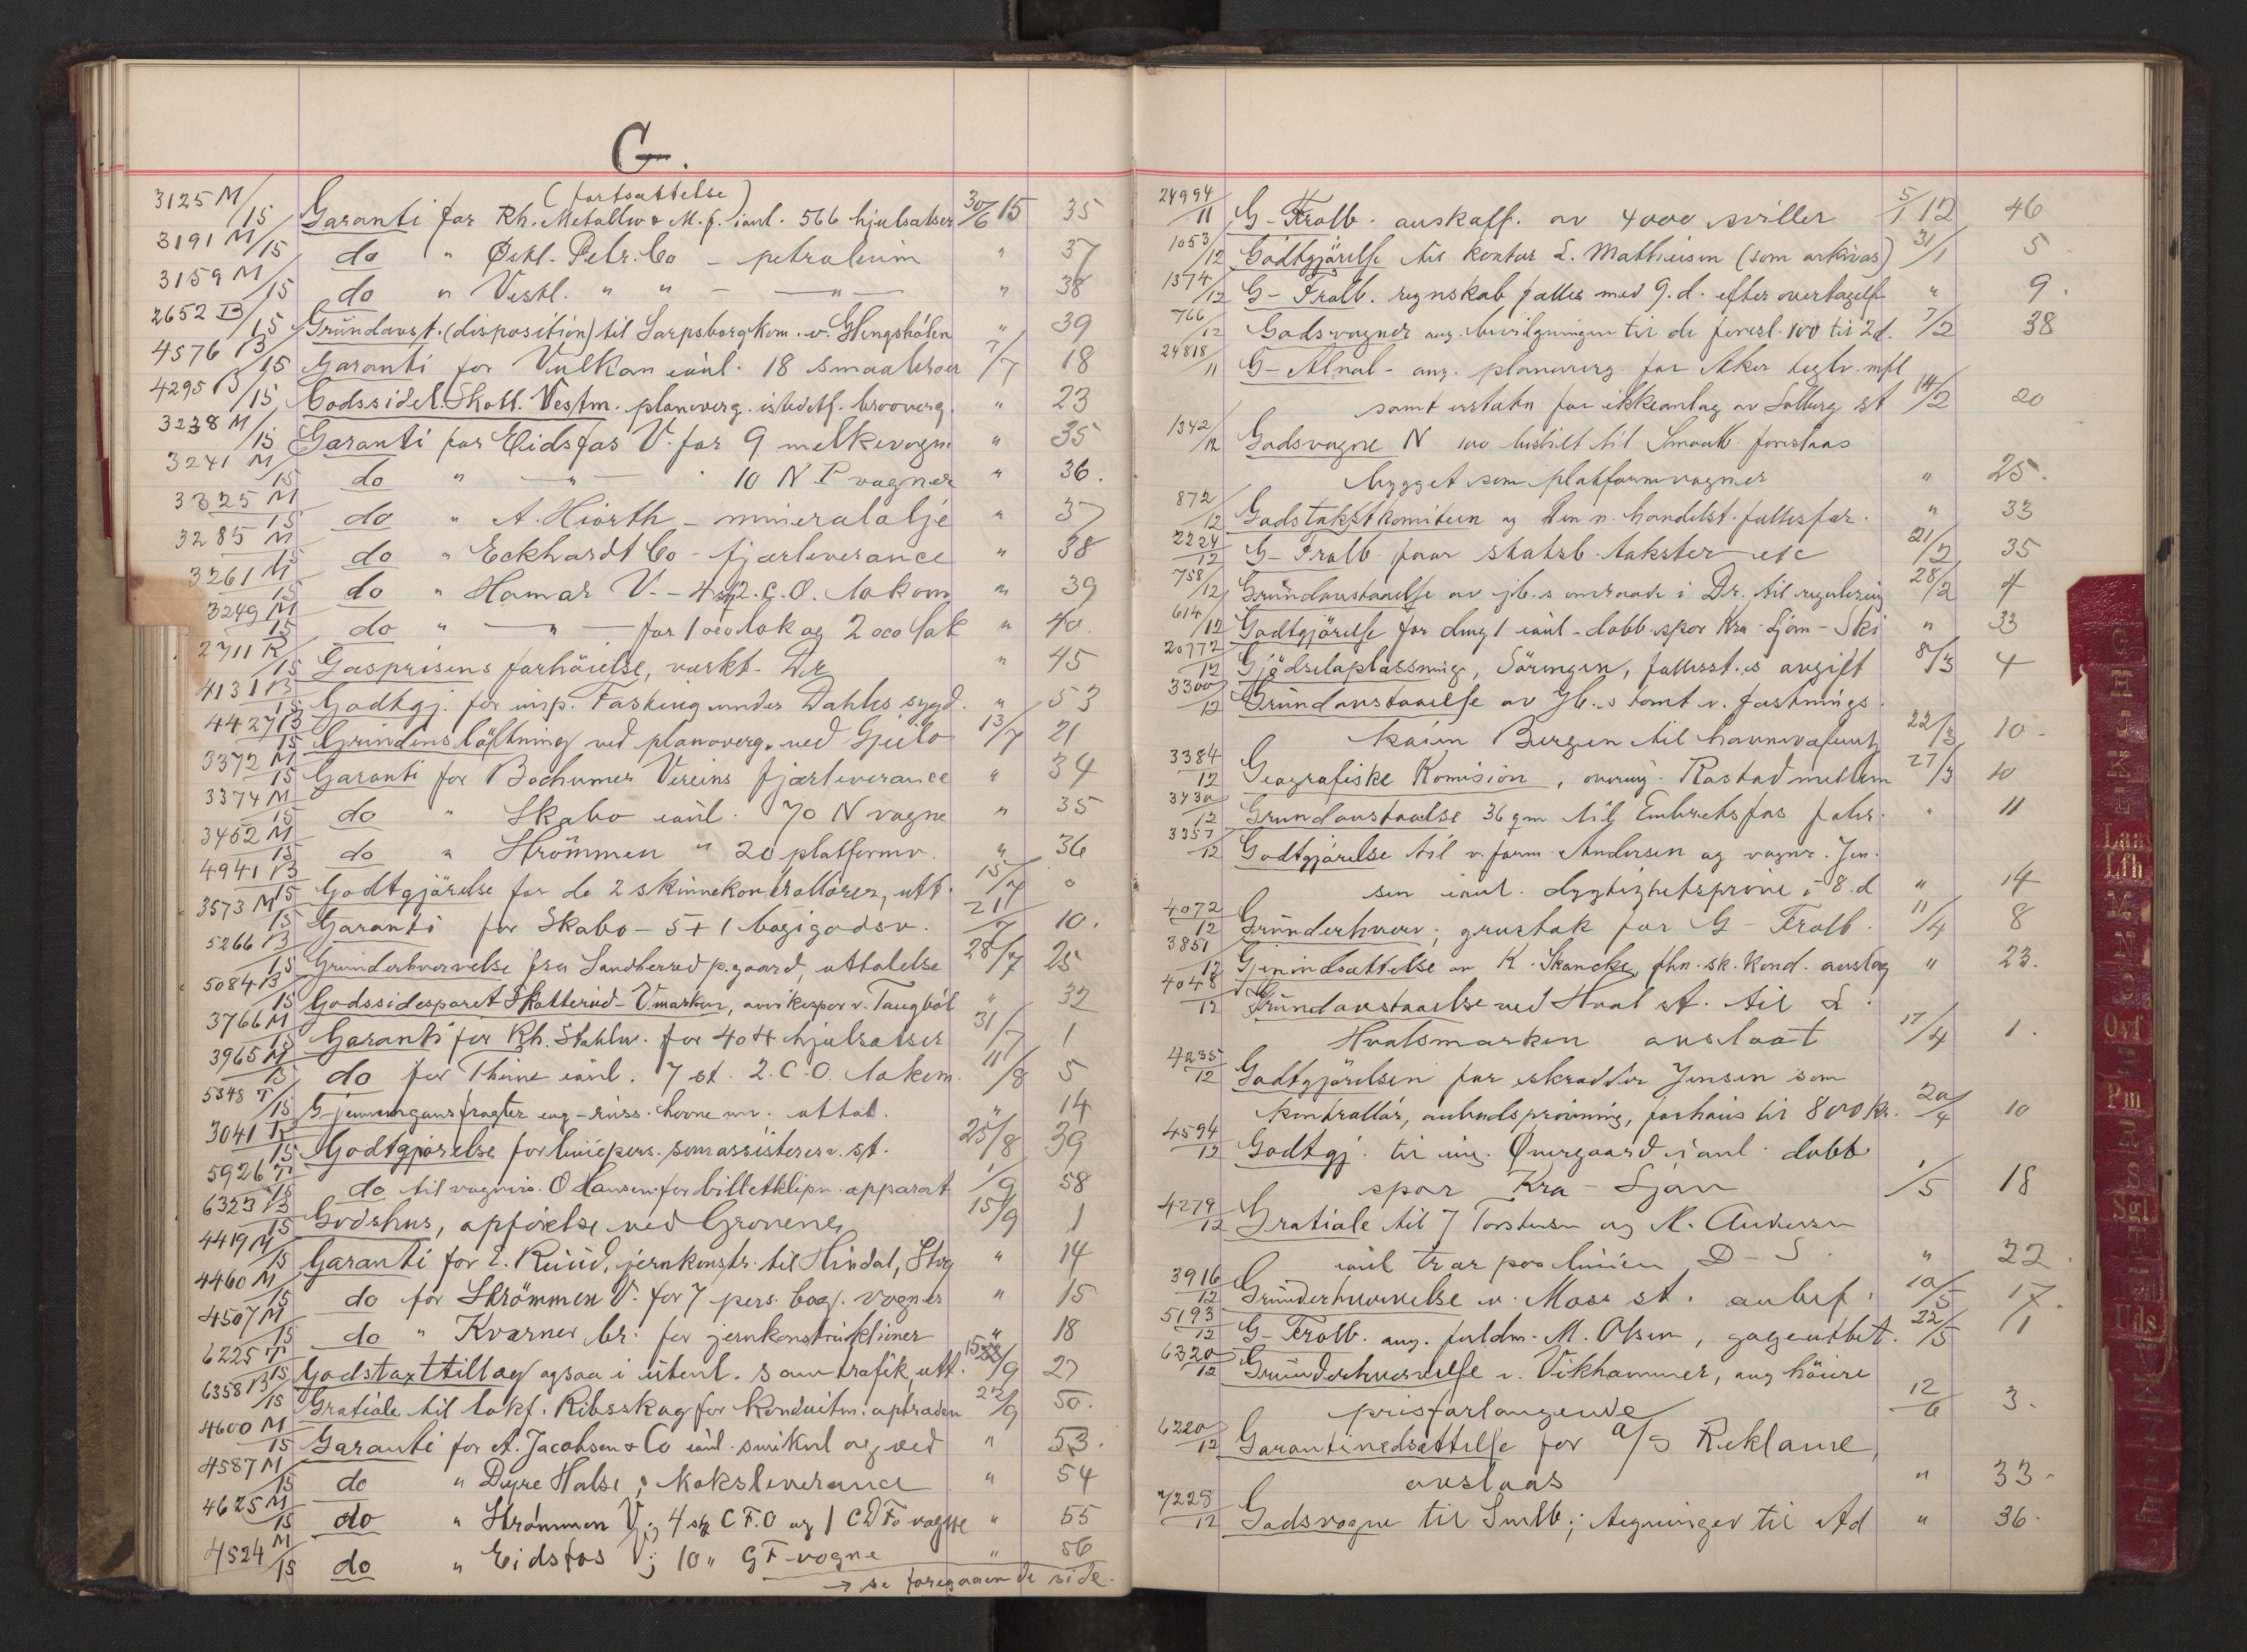 G.
(fortsættelse)
3125 M/15 Garanti for Rh. Metallw & M. f. ianl. 566 hjulsatser 30/6 15 35
3191 M/15 do " Østl. Petr. Co - petroleum " 37
3159 M/15 do " Vestl. " " - " - " 38
2652 B/15 Grundavst. (disposition) til Sarpsborg kom. v. Glengshølen " 39
4576 B/15 Garanti for Vulkan ianl. 18 smaabroer 7/7 18
4295 B/15 Godssidel. Skott. Vestm. planoverg. istedetf. brooverg. " 23
3238 M/15 Garanti for Eidsfos V. for 9 melkevogne " 35
3241 M/15 do " - " - 10 N P vogner " 36.
3325 M/15 do " A. Hiorth - mineralolje " 37
3285 M/15 do " Eckhardt Co - fjærleverance " 38
3261 M/15 do " Hamar V. - 4 stk 2. C. O. lokom " 39
3249 M/15 do " - " - for 1000 lok og 2000 lok " 40.
2711 R/15 Gasprisens forhøielse, verkt. Dr " 45
4131 B/15 Godtgj. for insp. Fasting under Dahls sygd. " 53
4427 B/15 Grindens løftning ved planoverg. ved Gjeilo 13/7 21
3372 M/15 Garanti for Bochumer Vereins fjærleverance " 34
3374 M/15 do " Skabo ianl. 70 N vogne " 35
3452 M/15 do " Strømmen " 20 platformv. " 36
4941 B/15 Godtgjørelse for de 2 skinnekontrollører, utt. 15/7 0
3573 M/15 Garanti for Skabo - 5 + 1 bogigodsv. 21/7 10.
5266 B/15 Grunderhvervelse fra Sandherred p.gaard, uttalelse 28/7 25
5084 B/15 Godssidesporet Skotterud - Vmarken, avvikespor v. Taugbøl " 32
3766 M/15 Garanti for Rh. Stahlw. for 404 hjulsatser 31/7 1
3965 M/15 do for Thune ianl. 7 st. 2. C. O. lokom. 11/8 5
5348 T/15 Gjennemgangsfragter eng-russ. havne uttal. " 14
3041 R/15 Godtgjørelse for liniepers. som assisterer v. st. 25/8 39
5926 T/15 do til vognvis. O Hansen for billetklipn. apparat 1/9 58
6323 B/15 Godshus, opførelse ved Gronene 15/9 1
4419 M/15 Garanti for E. Ruud, jernkonstr. til Hindal, Stog " 14
4460 M/15 do for Strømmen V. for 7 pers. bog. vogner " 15
4507 M/15 do " Kværner br. for jernkonstruktioner " 18
6225 T/15 Godstaxttillæg ogsaa i utenl. samtrafik, utt. 15/9 27
6358 B/15 Gratiale til lokf. Ribsskog for konduitm. optræden 22/9 50.
4600 M/15 Garanti for A. Jacobsen & Co ianl. smikul og ved " 53.
4587 M/15 do " Dyre Halse; koksleverance " 54
4625 M/15 do " Strømmen V; 4 stk C F. O og 1 C D Fo vogne " 55
4524 M/15 do " Eidsfos V; 10 " G F-vogne " 56
→ se foregaaende side.
24994/11 G-Fralb. anskaff. av 4000 sviller 5/1 12 46
1053/12 Godtgjørelse til kontor L. Mathiesen (som arkivas) 31/1 5
1374/12 G-Fralb. regnskab fælles med 9. d. efter overtagelse " 9.
766/12 Godsvogner ang. bevilgningen til de foresl. 100 til 2 d. 7/2 38
24818/11 G-Alnab- ang. planoverg. for Aker teglv. mfl
samt erstatn. for ikkeanlæg av Solberg st 14/2 20
1342/12 Godsvogne N 100 bestilt til Smaalb. foreslaas
bygget som platformvogner " 25.
872/12 Godstakstkomiteen og den n. handelst. fællesfor. " 33
2224/12 G-Fralb. faar statsb. takster etc 21/2 35
758/12 Grundavstaaelse av jb.s omraade i Dr. til regulering 28/2 4
614/12 Godtgjørelse for ding 1 ianl. dobb.spor Kra-Ljan-Ski " 33
20772/12 Gjødselaplassning, Søringen, fællesst.s avgift 8/3 4
3300/12 Grundavstaaelse av Jb.s tomt v. fæstnings
kaien Bergen til havnevæsenet 22/3 10
3384/12 Geografiske Komision, overing. Rastad medlem 27/3 10
3430/12 Grundavstaaelse 36 qm til Embretsfos fabr. " 11
3357/12 Godtgjørelse til v.form Andersen og vognr. Jen-
sen ianl. dygtighetsprøve i 8. d " 14
4072/12 Grunderhverv; grustak for G-Fralb. 11/4 8
3851/12 Gjenindsættelse av K. Skancke, fhn. sk. kond. avslag " 23.
4048/12 Grundavstaaelse ved Hval st. til L.
Hvalsmarken avslaat 17/4 1.
4235/12 Godtgjørelsen for skrædder Jensen som
kontrollør, anbudsprøvning, forhøies til 800 kr. 20/4 10
4594/12 Godtgj. til ing. Øvergaard ianl. dobb
spor Kra-Ljan 1/5 18
4279/12 Gratiale til J Torstensen og A. Andersen
ianl tvær paa linien D-S. " 22.
3916/12 Grunderhvervelse v. Moss st. anbef. 10/5 17.
5193/12 G-Fralb. ang. fuldm. M. Olsen, gageutbet. 22/5 1
6320/12 Grunderhvervelse v. Vikhammer, ang høiere
prisforlangende 12/6 3.
6220/12 Garantinedsættelse for A/S Reklame,
avslaas " 33.
7228/12 Godsvogne til Smlb; tegninger til Ad " 36.
G
H
I
J
K
L
Laa
Lfh
M
N
O
Ovf
P
Pm
R
S
Sgl.
T
U
Uds